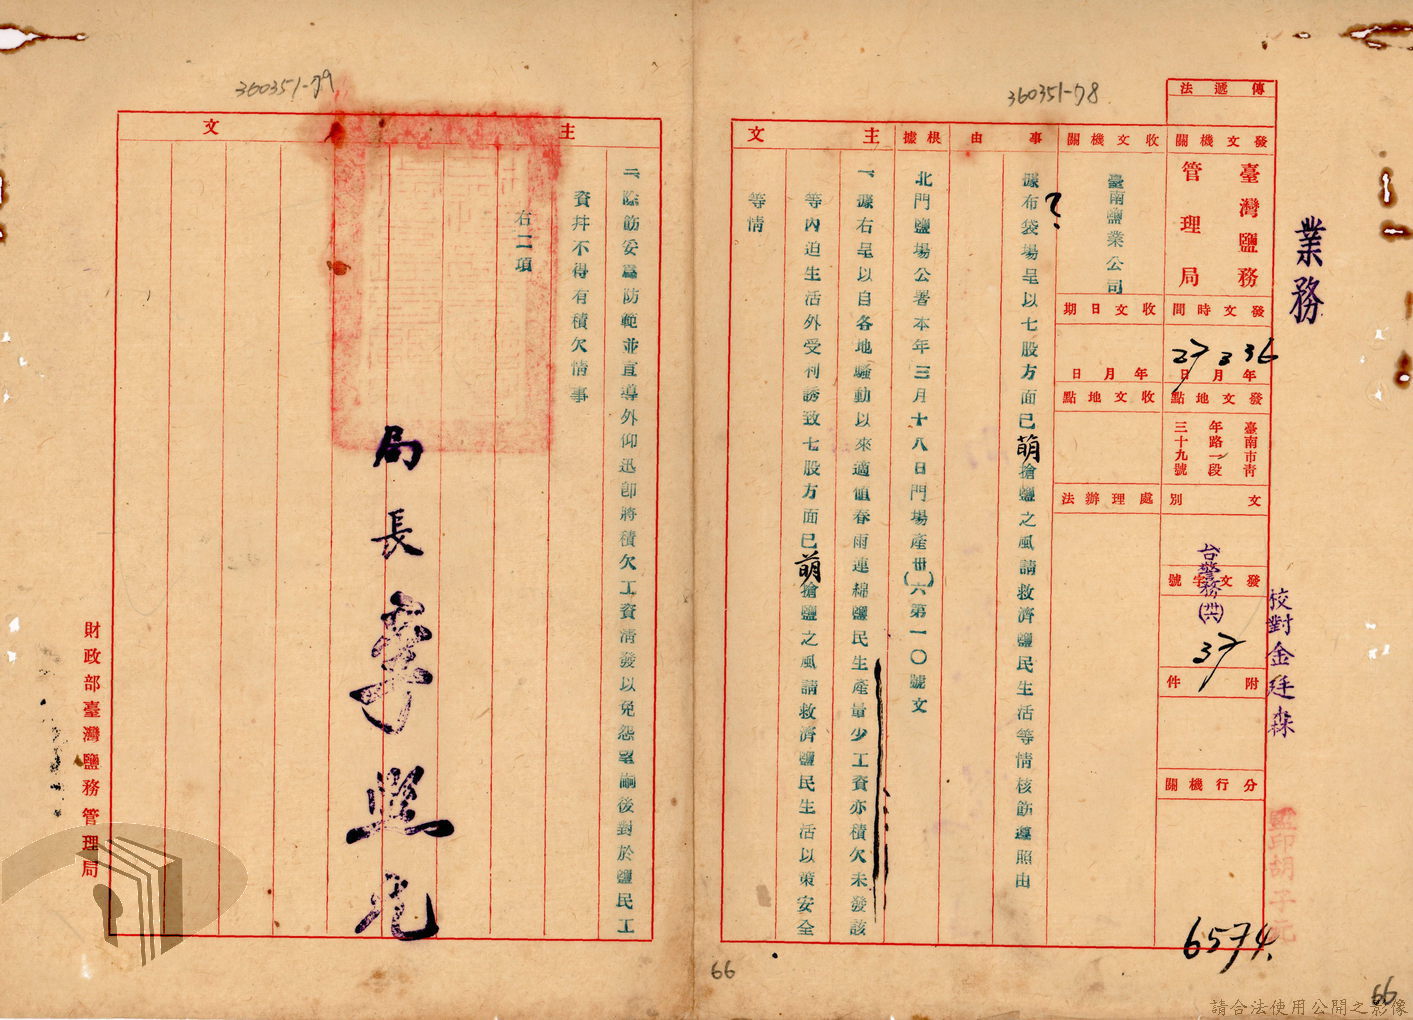 360351-79
360351-78
業務
傳遞法
發文機關
臺灣鹽務
管理局
發文時間
36年3月27日
發文地點
臺南市青
年路一段
三十九號
文別
發文字號
台警務(卅六)
37
附件
分行機關
收文機關
臺南鹽業公司
收文日期
年月日
收文地點
處理辦法
事由
據布袋場呈以七股方面已萌搶鹽之風請救濟鹽民生活等情核飭遵照由
根據
北門鹽場公署本年三月十八日門場產卅(六)第一〇號文
主文
一、據右呈以自各地騷動以來適值春雨連綿鹽民生產量少工資亦積欠未發該
等內迫生活外受利誘致七股方面已萌搶鹽之風請救濟鹽民生活以策安全
等情
校對金廷森
監印胡子
6574.
66
66
主文
二、除飭妥為防範並宣導外仰迅卽將積欠工資清發以免怨望嗣後對於鹽民工
資并不得有積欠情事
右二項
局長李興
財政部臺灣鹽務管理局
請合法使用公開之影像